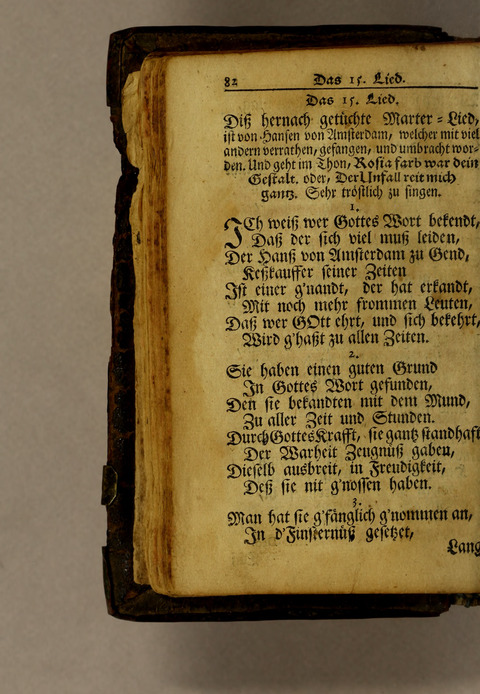 82 Das 15. Lied.
Das 15. Lied.
Diß hernach getüchte Marter-Lied,
ist von Hansen von Amsterdam, welcher mit viel
andern verrathen, gefangen, und umbracht wor-
den. Und geht im Thon, Rosina farb war dein
Gestalt. oder, Der Unfall reit mich
gantz. Sehr tröstlich zu singen.
1.
ICh weiß wer Gottes Wort bekendt,
Daß der sich viel muß leiden,
Der Hanß von Amsterdam zu Gend,
Keßkauffer seiner Zeiten
Ist einer g'nandt, der hat erkandt,
Mit noch mehr frommen Leuten,
Daß wer GOtt ehrt, und sich bekehrt,
Wird g'haßt zu allen Zeiten.
2.
Sie haben einen guten Grund
In Gottes Wort gefunden,
Den sie bekandten mit dem Mund,
Zu aller Zeit und Stunden.
Durch Gottes Krafft, sie gantz standhaft
Der Warheit Zeugnüß gaben,
Dieselb ausbreit, in Freudigkeit,
Deß sie nit g'nossen haben.
3.
Man hat sie g'fänglich g'nommen an,
In d'Finsternüß gesetzet,
Lang